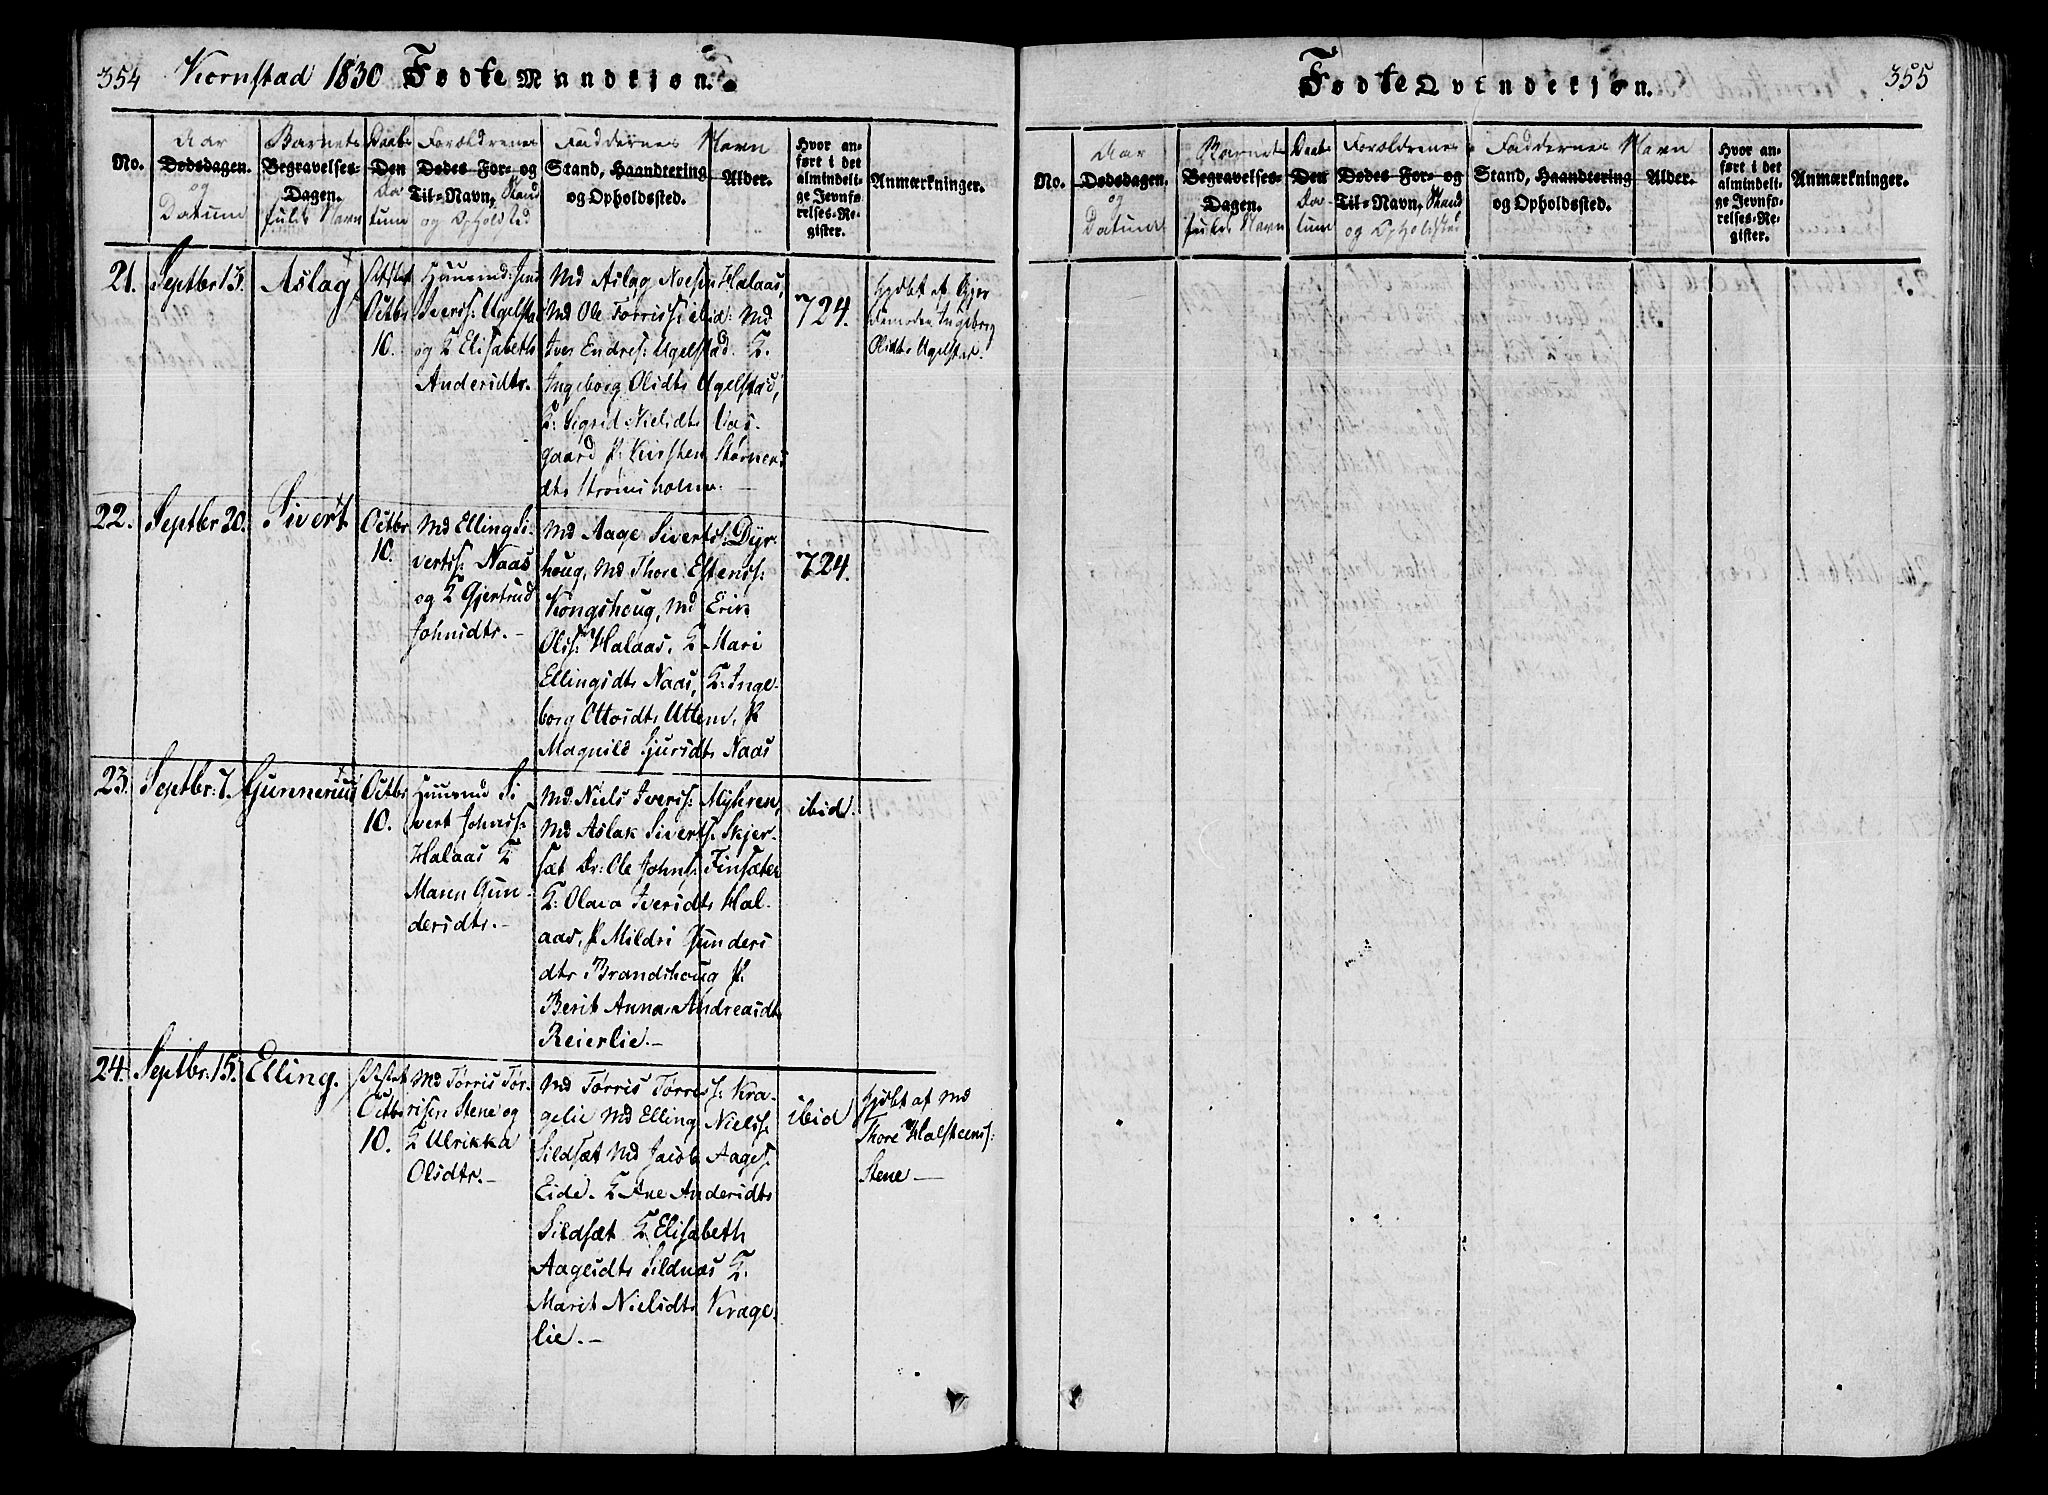 354 Kornstad 1830 Fødte Mandkjøn.
No.
Aar
Dødsdagen.
og
Datum
Barnets
Begravelses-
Dagen.
fulde Navn
Daabs
Den
Da
tum
Forældrenes
Dødes For- og
Til-Navn, Stand
og Opholdsted
Faddernes Navn
Stand, Haandtering
og Opholdssted.
Alder.
Hvor an-
ført i det
almindeli-
ge Jevnfø-
relses-Re-
gister.
Anmærkninger.
21.
Septbr 13.
Aslag
Octbr
10.
Huusmd: Jens
Ivers: Ugelsta
og K Elisabeth
Andersdtr.
Md Aslag Noes: Halaas,
Md Ole Torris: ibid: Md
Iver Endres: Ugelstad. K.
Ingeborg Olsdtr Ugelstad,
K: Sigrid Nielsdtr Vas-
gaard P. Kirsten Størners
dtr Strømsholm.
724.
hjdbt af Gjor
demoder Ingeborg
Olsdtr Ugelstad.
22.
Septbr 20.
Sivert
Octbr
10.
Md Elling Si-
vertss: Naas
og K Gjertrud
Johnsdtr. -
Md Aage Sivertss: Dyr-
houg, Md Thore Estenss:
Kongshoug, Md Erik
Olss: Halaas, K Mari
Ellingsdtr Naas, K: Inge-
borg Ottosdtr Uttem, P
Magnild Sjursdtr Naas
724.
23.
Septbr: 7.
Gunnerius
Octbr
10.
Huusmd Si
vert Johnss:
Halaas K
Maren Gun-
dersdtr. -
Md: Niels Iverss: Myhren,
Md Aslak Siverts: Skjer-
sæt Dr: Ole Johns: Finsæter
K: Olava Iversdtr Hal-
aas, P. Mildri Gunders
dtr Brandshoug P.
Berit Anna Andreasdtr
Reierlie. -
ibid.
24.
Septbr: 15.
Elling.
Octbr
10.
Md Tørris Tør-
risen Stene og
K Ulrikka
Olsdtr. -
Md Tørris Tørres: Kra-
gelie Md Elling Nielss:
Sildsæt Md Jacob Aages:
Eide. K Ane Andersdtr
Sildsæt K Elisabeth
Aagesdtr Sildnas K.
Marit Nielsdtr Krage-
lie. -
ibid
hjdbt af Md
Thore Halsteens:
Stene -
Fødte Qvindekjøn.
355
No.
Aar
Dødsdagen.
og
Datum
Barnets
Begravelses-
Dagen.
fulde Navn
Daabs
Den
Da-
tum
Forældrenes
Dødes For- og
Til-Navn, Stand
og Opholdsted
Faddernes Navn
Stand, Haandtering
og Opholdssted.
Alder.
Hvor an-
ført i det
almindeli-
ge Jevnfø-
relses-Re-
gister.
Anmærkninger.